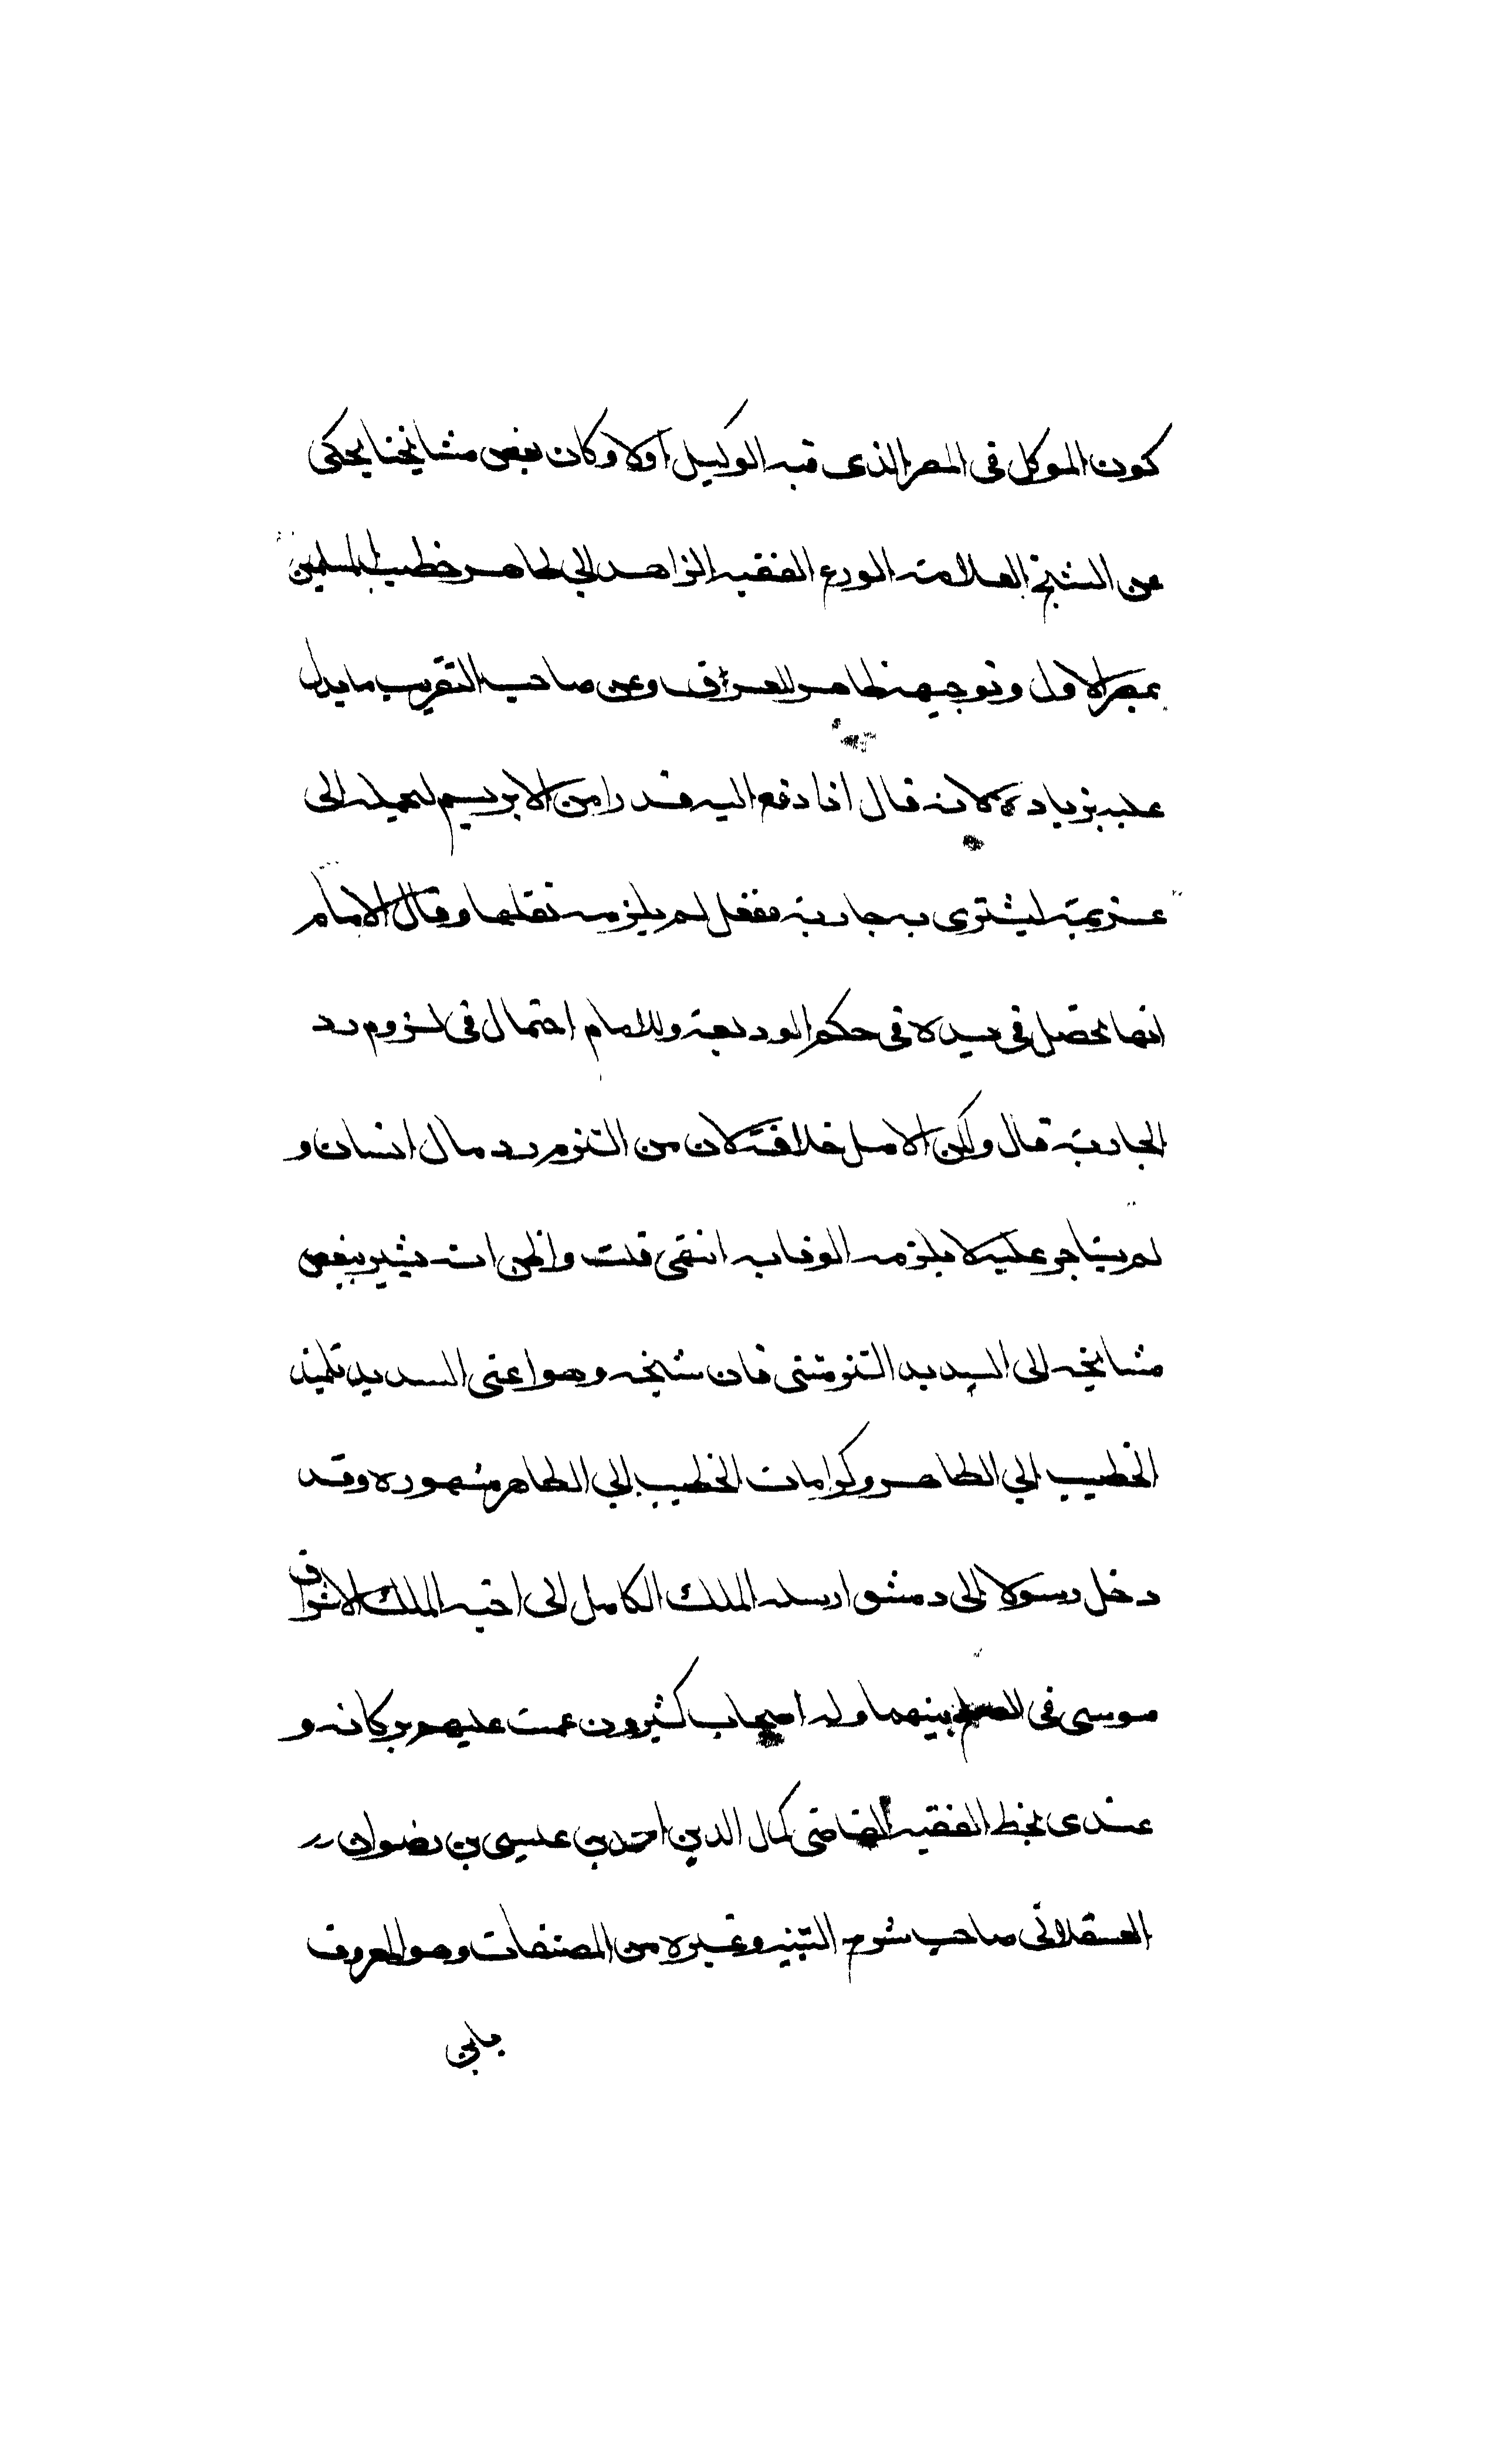 كون الموكل في المصر الذي فيه الوكيل أولا وكان بعض مشايخنا يحكى
عن الشيخ العلامة الورع الفقيه الزاهد ابي طاهر خطيب المسلمين
بمصر الاول وتوجيهه ظاهر للعرف وعن صاحب التقريب ما يدل
عليه بزيادة لانه قال اذا دفع اليه قدرا من الابريسم ليحمله الى
عزيمته ليشترى به جارية ففعل لم يلزمه نقلها وقال الامام
انها تحصل في يده في حكم الوديعة وللامام احتمال في لزوم رد
الجارية قال ولكن الاصل خلافه لان من التزم رد مال انسان و
لم يستاجر عليه لا يلزمه الوفا به انتهى قلت واظن انه يشير ببعض
مشايخه الى السديد التزمنتى فان شيخه وهو اعنى السديد تلميذ
الخطيب ابي الطاهر وكرامات الخطيب ابي الطاهر مشهوره وقد
دخل رسولا الى دمشق ارسله الملك الكامل الى اخيه الملك الاشرف
موسى في الصلح بينهما وله اصحاب كثيرون عمت عليهم بركاته و
عندى بخط الفقيه القاضى كمال الدين احمد بن عيسى بن رضوان
العسقلانى صاحب شرح التنبيه وغيره من المصنفات وهو المعروف